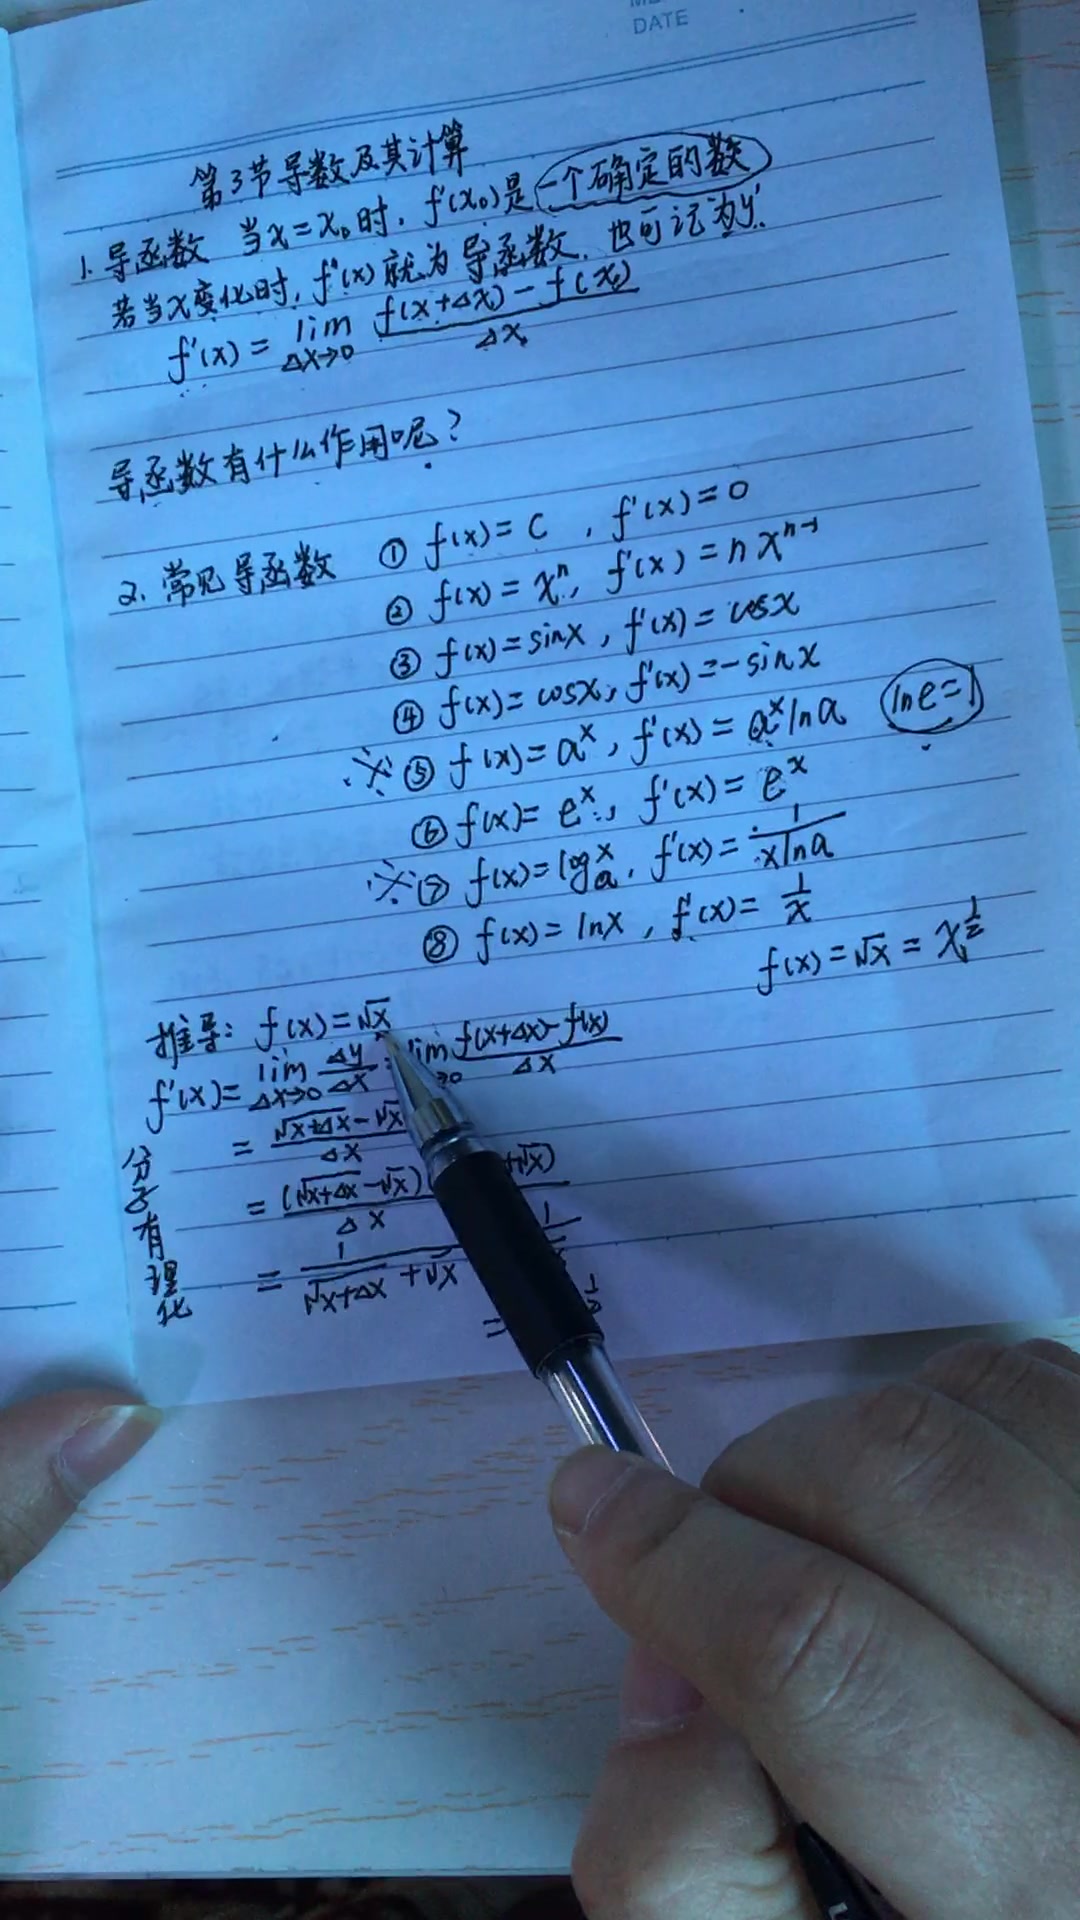 DATE
第3节导数及其计算
1. 导函数 当x=x₀时, f'(x₀)是一个确定的数
若当x变化时, f'(x)就为导函数, 也可记为y'.
f'(x) = lim Δx→0 (f(x+Δx)-f(x))/Δx
导函数有什么作用呢?
2. 常见导函数 ① f(x)=C , f'(x)=0
② f(x)=xⁿ, f'(x)=nxⁿ⁻¹
③ f(x)=sinx, f'(x)=cosx
④ f(x)=cosx, f'(x)=-sinx
※⑤ f(x)=aˣ, f'(x)=aˣlna lne=1
⑥ f(x)=eˣ, f'(x)=eˣ
※⑦ f(x)=logₐx, f'(x)=1/(xlna)
⑧ f(x)=lnx, f'(x)=1/x
f(x)=√x=x^(1/2)
推导: f(x)=√x
f'(x)=lim Δx→0 Δy/Δx lim (f(x+Δx)-f(x))/Δx
= (√(x+Δx)-√x)/Δx
= (√(x+Δx)-√x)( +√x)/Δx
= 1/(√(x+Δx)+√x)
=
分子有理化